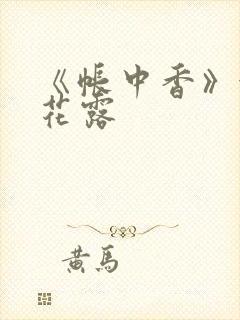 《帐中香》
花露
黄馬